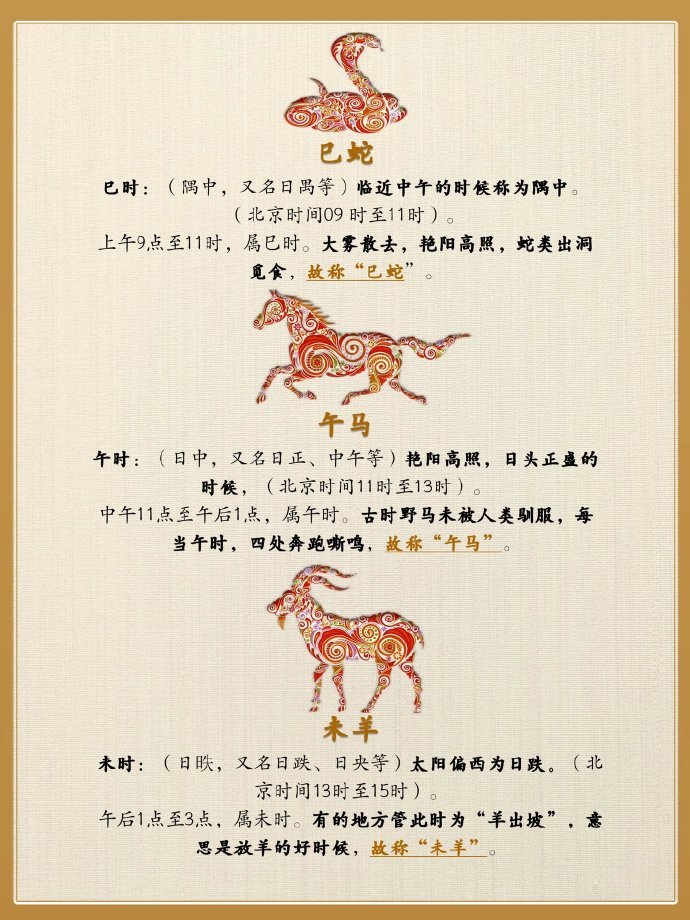 巳蛇
巳时：（隅中，又名日禺等）临近中午的时候称为隅中。
（北京时间09 时至11时）。
上午9点至11时，属巳时。大雾散去，艳阳高照，蛇类出洞
觅食，故称“巳蛇”。
午马
午时：（日中，又名日正、中午等）艳阳高照，日头正盛的
时候，（北京时间11时至13时）。
中午11点至午后1点，属午时。古时野马未被人类驯服，每
当午时，四处奔跑嘶鸣，故称“午马”。
未羊
未时：（日昳，又名日跌、日央等）太阳偏西为日跌。（北
京时间13时至15时）。
午后1点至3点，属未时。有的地方管此时为“羊出坡”，意
思是放羊的好时候，故称“未羊”。